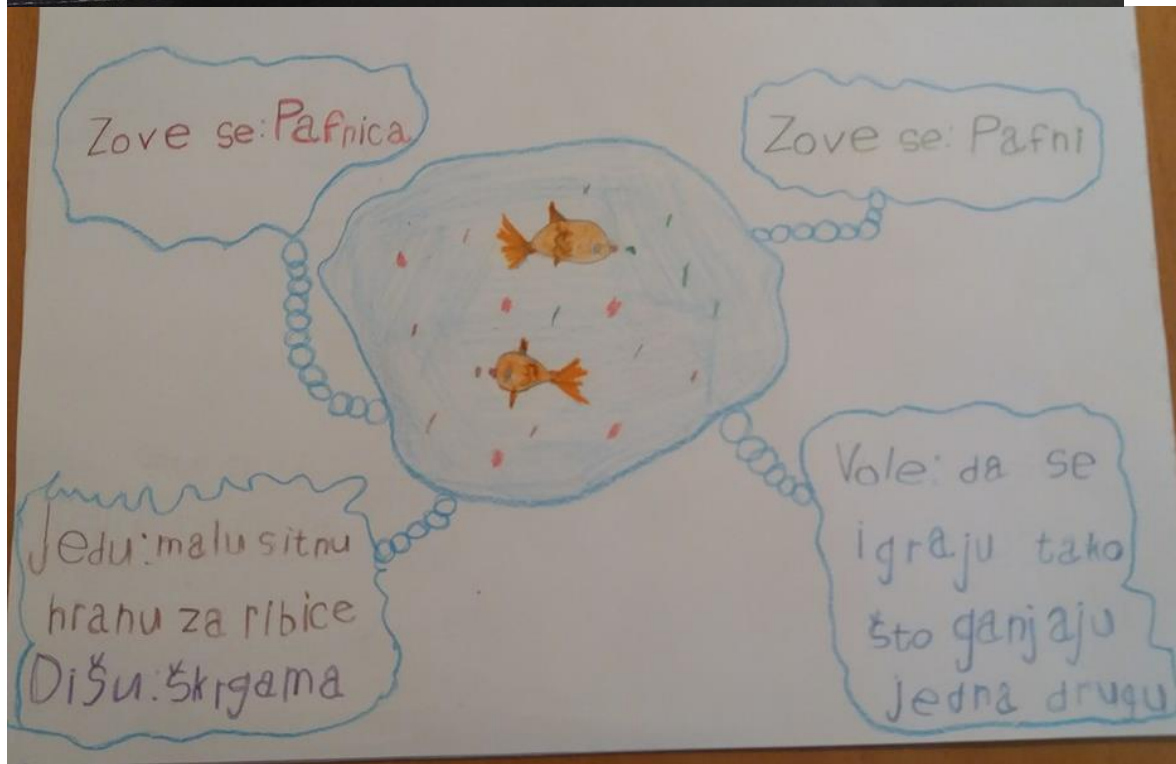 Zove se: Pafnica
Zove se: Pafni
Jedu: malu sitnu
hranu za ribice
Dišu: škrgama
Vole: da se
igraju tako
što ganjaju
jedna drugu